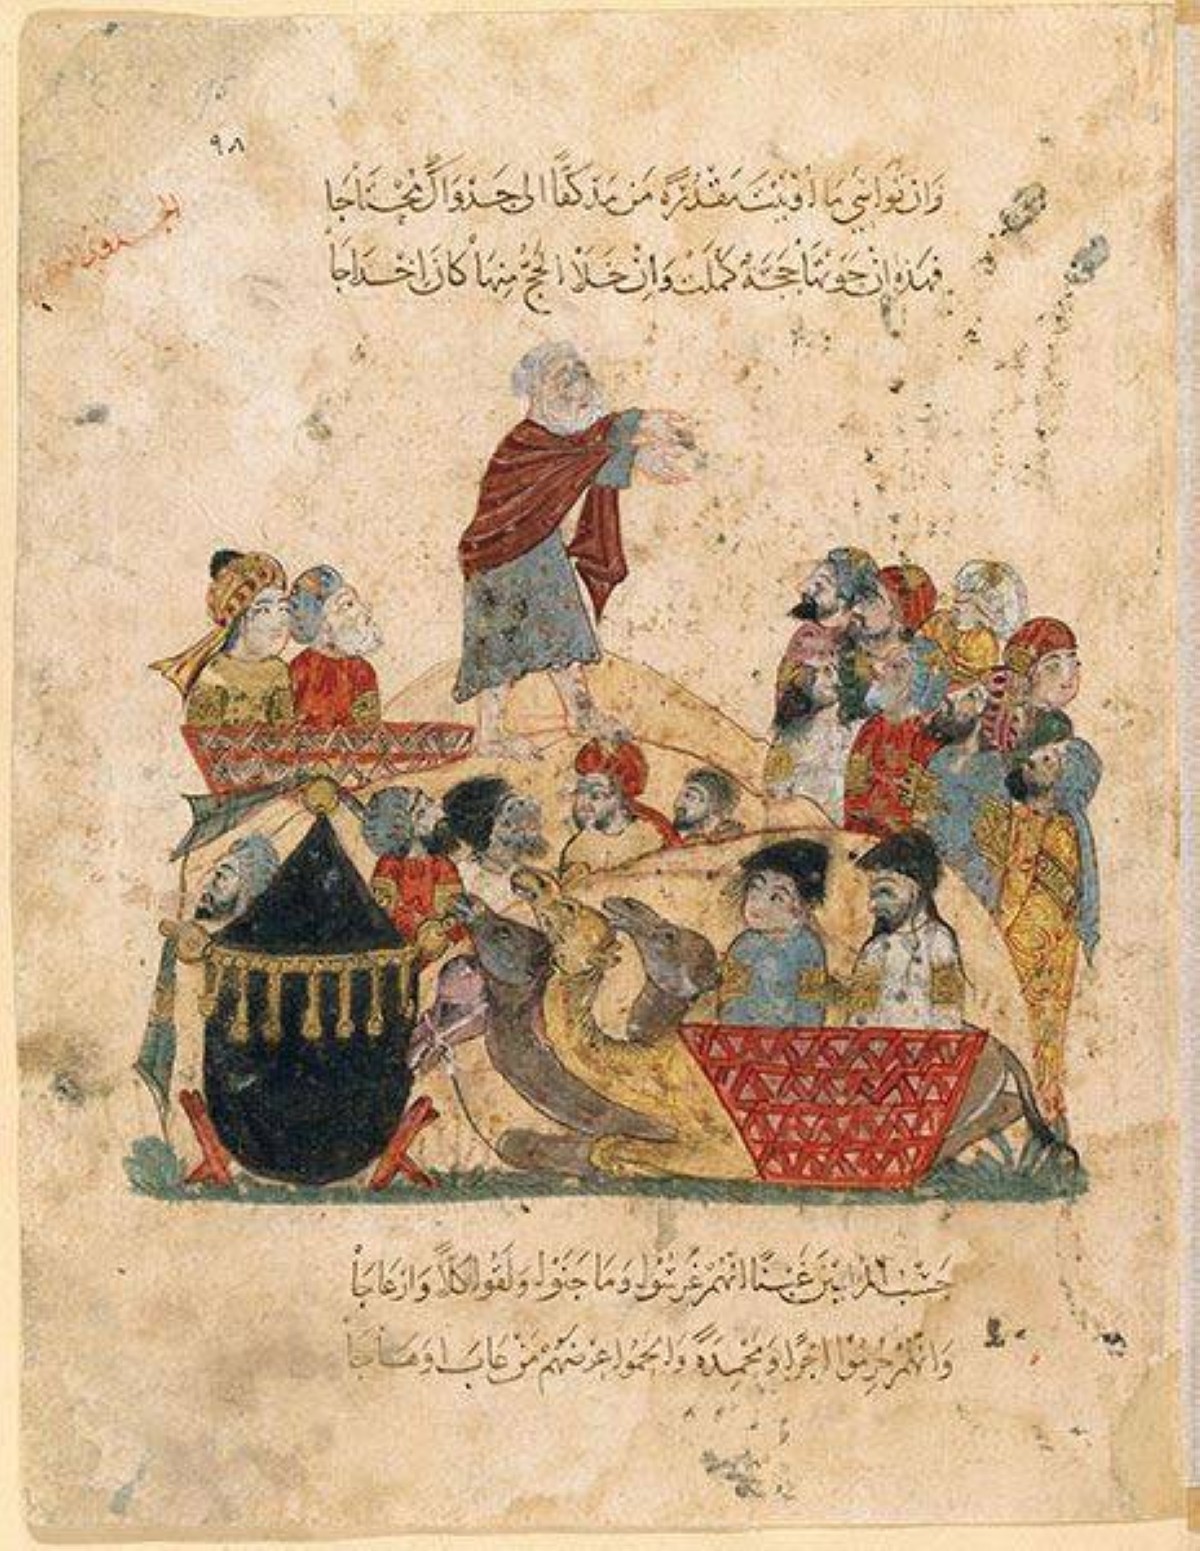 ٩٨
وَان تُواسِي مَا أُوتِيتَ مَقْدُرَةً مَن مَدَّ كَفًّا الى جَدْوَاكَ مُحْتَاجا
فهَذه إنْ حَوَتْهَا حَجَّةٌ كمُلَت وَاِنْ خَلَا الحجُّ مِنهَا كانَ اِخْدَاجَا
حَسْبُ المُرَائِينَ غَبْنًا انّهُمْ غَرَسُوا وَمَا جَنَوْا وَلَقُوا كدًّا وَازعَاجَا
وَانّهُمْ حُرِمُوْا اجْرًا وَمَحْمِدَةً وَالحَمُوا عِرْضَهُمْ مَنْ عَابَ اوهَاجَا